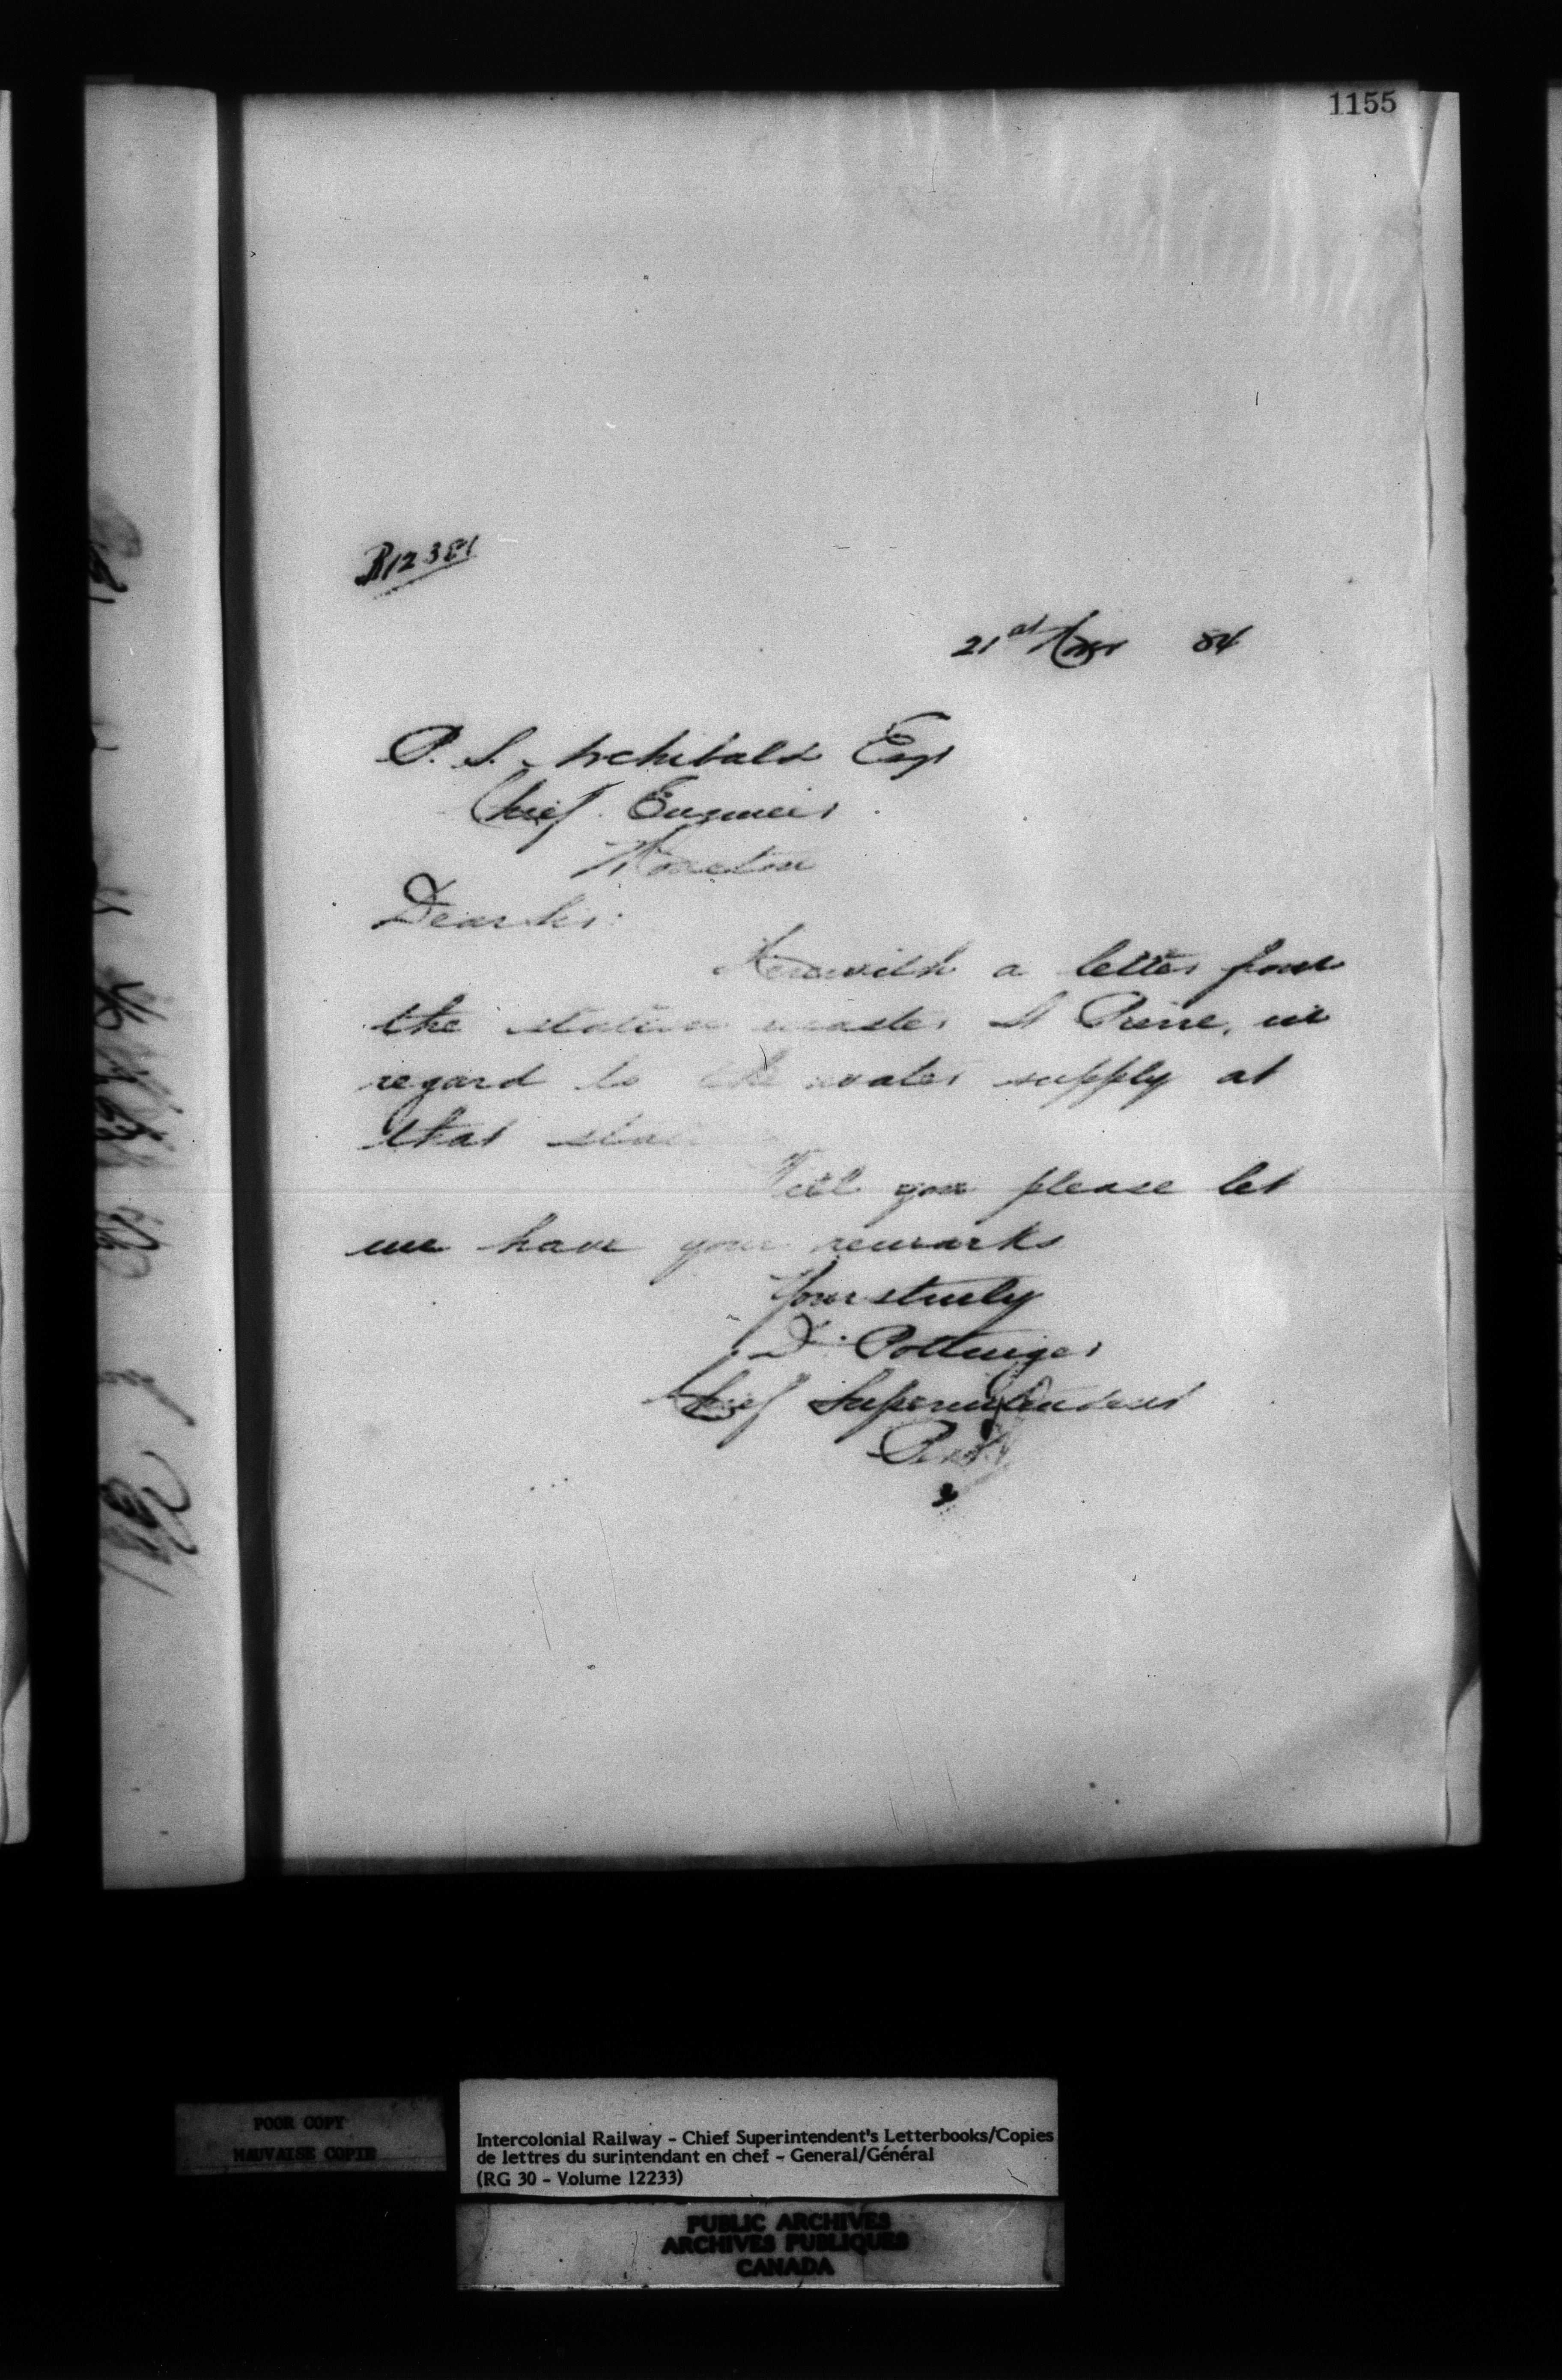 1155
R12381
21st Nov 84
P. S. Archibald Esqr
Chief Engineer
Moncton
Dear Sir:
Herewith a letter from
the station master St Pierre, in
regard to the water supply at
that station
Will you please let
me have your remarks
Yours truly
D. Pottinger
Chief Superintendent
POOR COPY
MAUVAISE COPIE
Intercolonial Railway - Chief Superintendent's Letterbooks/Copies
de lettres du surintendant en chef - General/Général
(RG 30 - Volume 12233)
PUBLIC ARCHIVES
ARCHIVES PUBLIQUES
CANADA